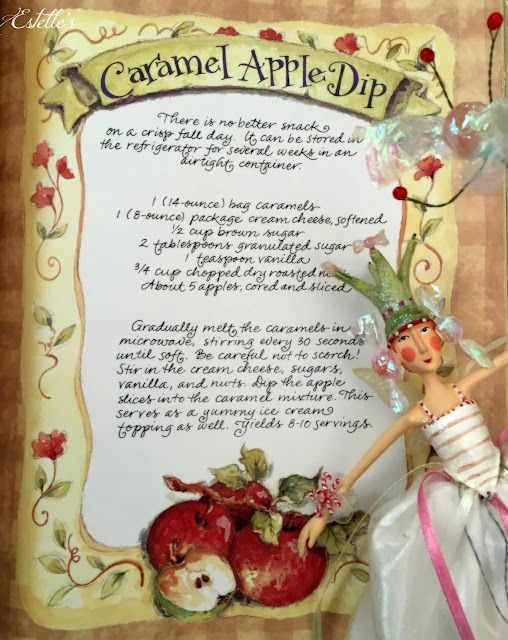 Estelle's
Caramel Apple Dip
There is no better snack
on a crisp fall day. It can be stored in
the refrigerator for several weeks in an
airtight container.
1 (14-ounce) bag caramels
1 (8-ounce) package cream cheese, softened
1/2 cup brown sugar
2 tablespoons granulated sugar
1 teaspoon vanilla
3/4 cup chopped dry roasted
About 5 apples, cored and sliced
Gradually melt the caramels in
microwave, stirring every 30 seconds
until soft. Be careful not to scorch!
Stir in the cream cheese, sugars,
vanilla, and nuts. Dip the apple
slices into the caramel mixture. This
serves as a yummy ice cream
topping as well. Yields 8-10 servings.